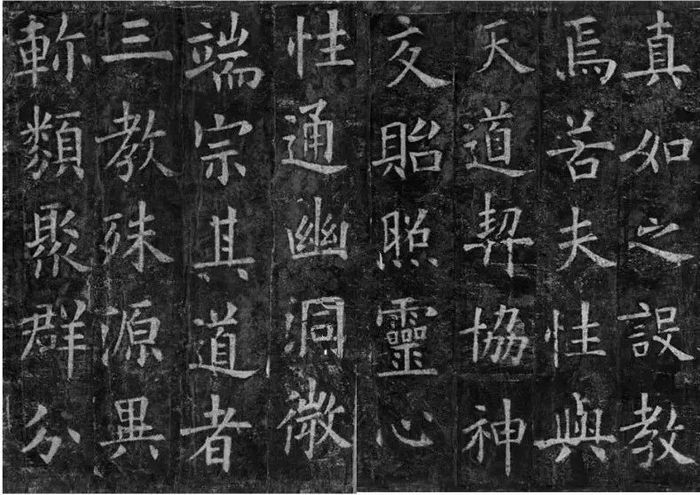 真如之設教
焉若夫性與
天道契協神
交貽照靈心
性通幽洞微
端宗其道者
三教殊源異
軫類聚群分